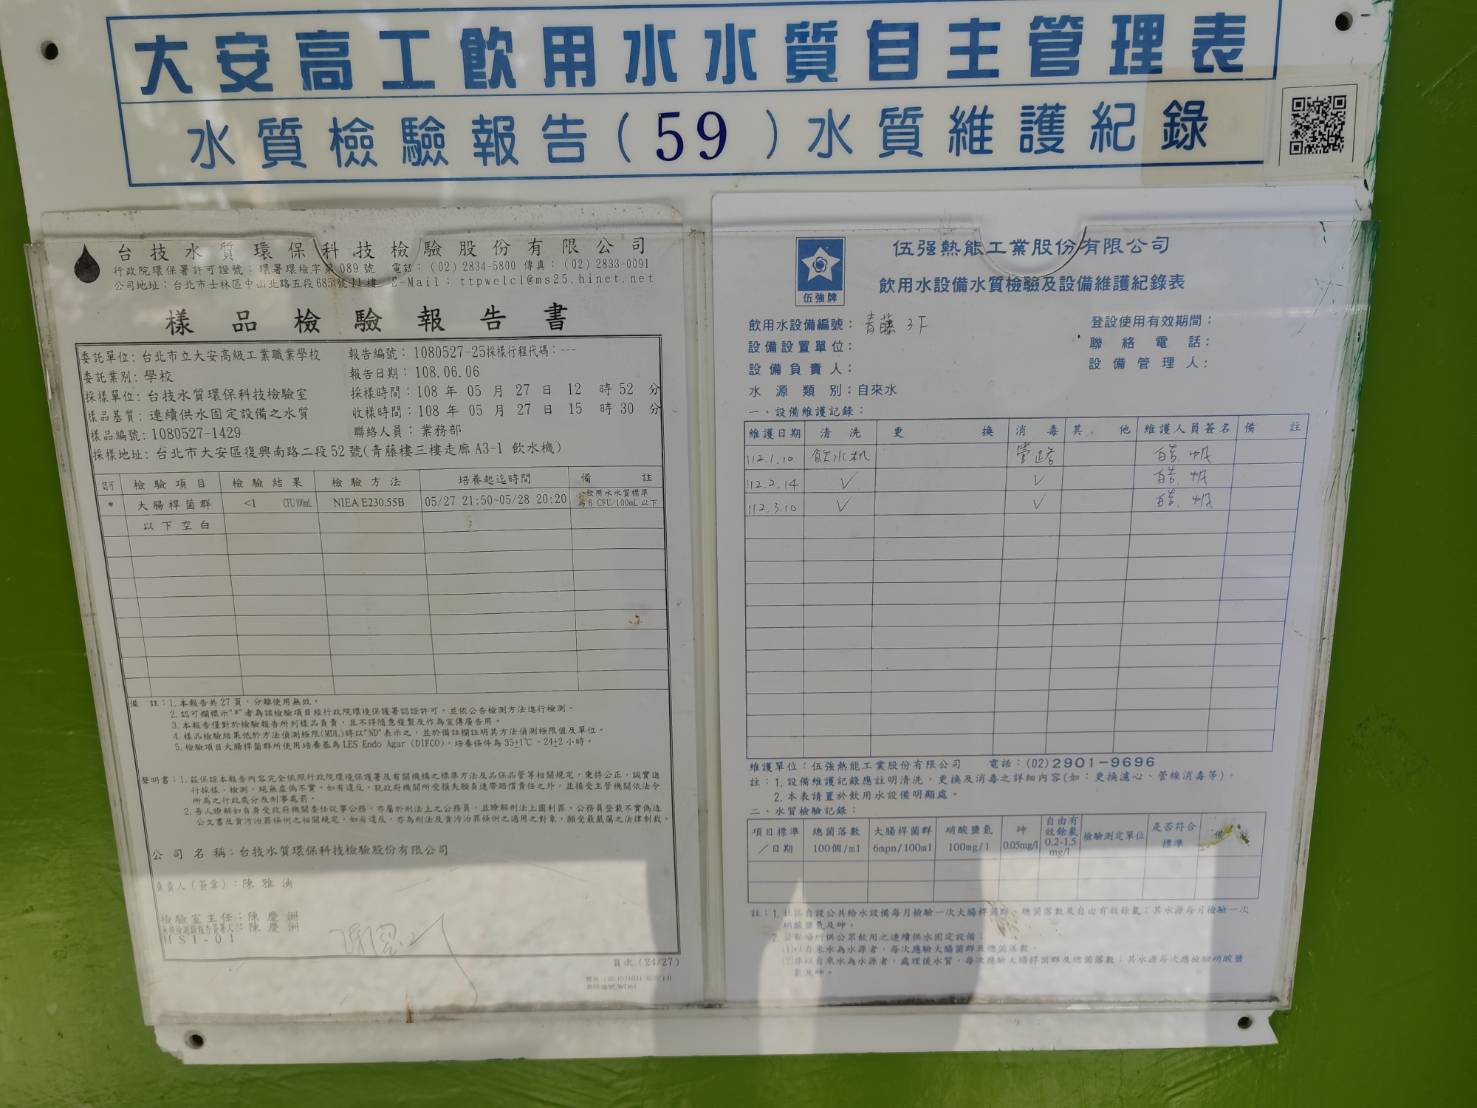 大安高工飲用水水質自主管理表
水質檢驗報告(59)水質維護紀錄
台技水質環保科技檢驗股份有限公司
行政院環保署許可證號：環署環檢字第089號 電話：(02)2834-5800 傳真：(02)2833-0091
公司地址：台北市士林區中山北路五段685號 樓 E-Mail：ttpwelcl@ms25.hinet.net
樣品檢驗報告書
委託單位：台北市立大安高級工業職業學校 報告編號：1080527-25採樣行程代碼：---
委託業別：學校 報告日期：108.06.06
採樣單位：台技水質環保科技檢驗室 採樣時間：108 年 05 月 27 日 12 時 52 分
樣品基質：連續供水固定設備之水質 收樣時間：108 年 05 月 27 日 15 時 30 分
樣品編號：1080527-1429 聯絡人員：業務部
採樣地址：台北市大安區復興南路二段52號(青藤樓三樓走廊A3-1飲水機)
認可 檢驗項目 檢驗結果 檢驗方法 培養起迄時間 備註
* 大腸桿菌群 <1 CFU/100mL NIEA E230.55B 05/27 21:50~05/28 20:20 飲用水水質標準為6 CFU/100mL以下
以下空白
備 註：1.本報告共27頁，分離使用無效。
2.認可欄標示"*"者為該檢驗項目經行政院環境保護署認證許可，並依公告檢測方法進行檢測。
3.本報告僅對於檢驗報告所列樣品負責，且不得隨意複製及作為宣傳廣告用。
4.樣品檢驗結果低於方法偵測極限(MDL)時以"ND"表示之，並於備註欄註明其方法偵測極限值及單位。
5.檢驗項目大腸桿菌群所使用培養基為LES Endo Agar (DIFCO)，培養條件為35±1℃、24±2小時。
聲明書：1.茲保證本報告內容完全依照行政院環境保護署及有關機構之標準方法及品保品管等相關規定，秉持公正、誠實進
行採樣、檢測。絕無虛偽不實，如有違反，就政府機關所受損失願負連帶賠償責任之外，並接受主管機關依法令
所為之行政處分及刑事處罰。
2.吾人瞭解如自身受政府機關委任從事公務，亦屬於刑法上之公務員，並瞭解刑法上圖利罪、公務員登載不實偽造
公文書及貪污治罪條例之相關規定，如有違反，亦為刑法及貪污治罪條例之適用之對象，願受最嚴厲之法律制裁。
公 司 名 稱：台技水質環保科技檢驗股份有限公司
負責人(簽章)：陳雅
檢驗室主任：陳慶
HSI-01
頁次：(24/27)
伍強牌
伍强熱能工業股份有限公司
飲用水設備水質檢驗及設備維護紀錄表
飲用水設備編號：青藤 3F 登設使用有效期間：
設備設置單位： 聯絡電話：
設備負責人： 設備管理人：
水源類別：自來水
一、設備維護記錄：
維護日期 清洗 更換 消毒 其他 維護人員簽名 備註
112.1.10 飲水机 管路
112.2.14 ✓ ✓
112.3.10 ✓ ✓
維護單位：伍强熱能工業股份有限公司 電話：(02)2901-9696
註：1.設備維護記錄應註明清洗、更換及消毒之詳細內容(如：更換濾心、管線消毒等)。
2.本表請置於飲用水設備明顯處。
二、水質檢驗記錄：
項目標準／日期 總菌落數100個/ml 大腸桿菌群6mpn/100ml 硝酸鹽氮100mg/l 砷0.05mg/l 自由有效餘氯0.2-1.5mg/l 檢驗測定單位 是否符合標準 備註
註：1.社區自設公共給水設備每月檢驗一次大腸桿菌群、總菌落數及自由有效餘氯；其水源每月檢驗一次
硝酸鹽氮及砷。
2.公私場所供公眾飲用之連續供水固定設備：
(1)以自來水為水源者，每次應驗大腸桿菌群及總菌落數。
(2)非以自來水為水源者，處理後水質，每次應驗大腸桿菌群及總菌落數；其水源每次應檢驗硝酸鹽
氮及砷。